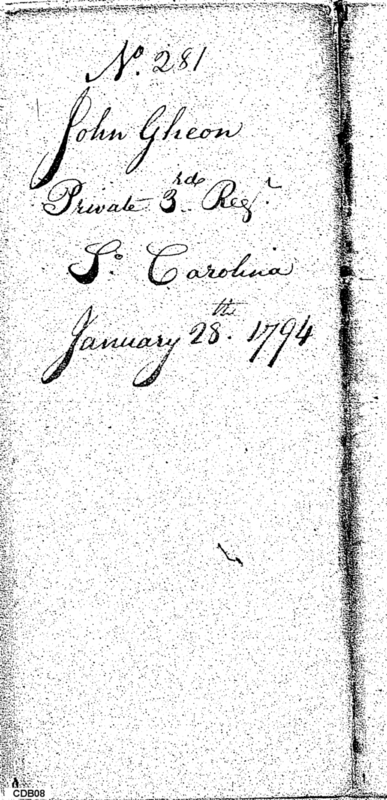 No. 281
John Gheon
Private 3rd Regt.
So. Carolina
January 28th. 1794
CDB08